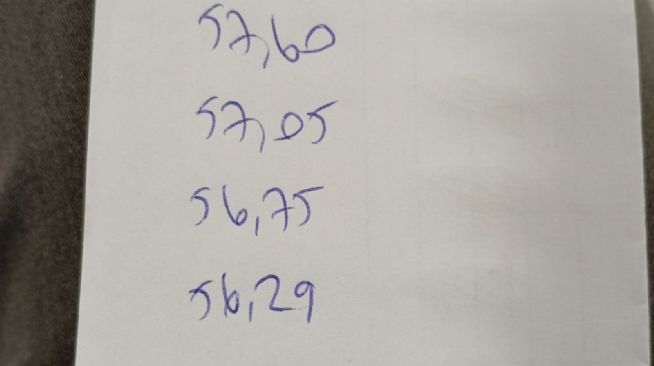 57,60
57,05
56,75
56,29